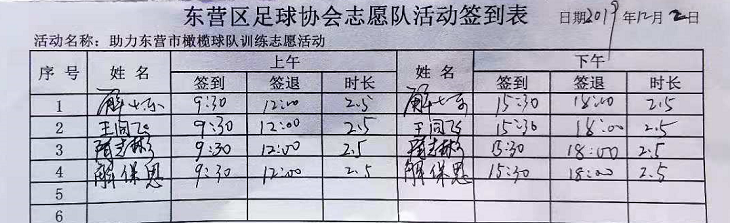 东营区足球协会志愿队活动签到表 日期2019年12月2日
活动名称：助力东营市橄榄球队训练志愿活动
序号 姓名 上午 姓名 下午
签到 签退 时长 签到 签退 时长
1 9:30 12:00 2.5 15:30 18:00 2.5
2 王同飞 9:30 12:00 2.5 王同飞 15:30 18:00 2.5
3 9:30 12:00 2.5 15:30 18:00 2.5
4 解保恩 9:30 12:00 2.5 解保恩 15:30 18:00 2.5
5
6